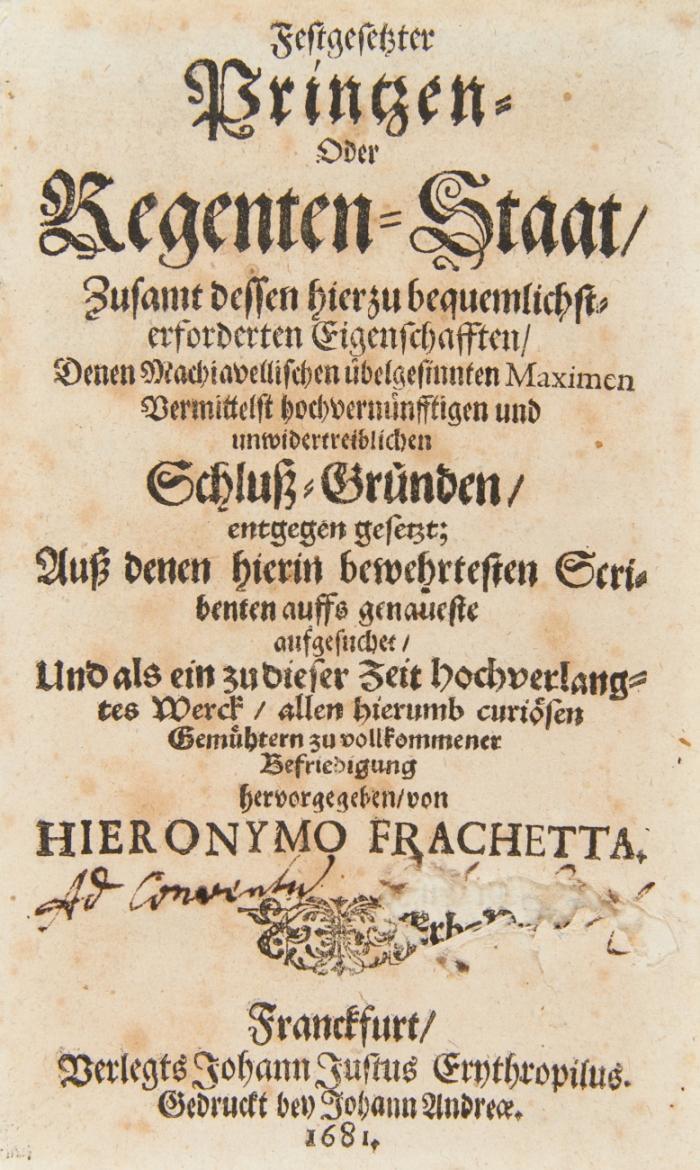 Festgesetzter
Printzen-
Oder
Regenten-Staat/
Zusamt dessen hierzu bequemlichst-
erforderten Eigenschafften/
Denen Machiavellischen übelgesinnten Maximen
Vermittelst hochvernünfftigen und
unwidertreiblichen
Schluß-Gründen/
entgegen gesetzt;
Auß denen hierin bewehrtesten Scri-
benten auffs genaueste
aufgesuchet/
Und als ein zu dieser Zeit hochverlang-
tes Werck / allen hierumb curiösen
Gemühtern zu vollkommener
Befriedigung
hervorgegeben/von
HIERONYMO FRACHETTA.
Ad Conventu
Franckfurt/
Verlegts Johann Justus Erythropilus.
Gedruckt bey Johann Andreæ.
1681.